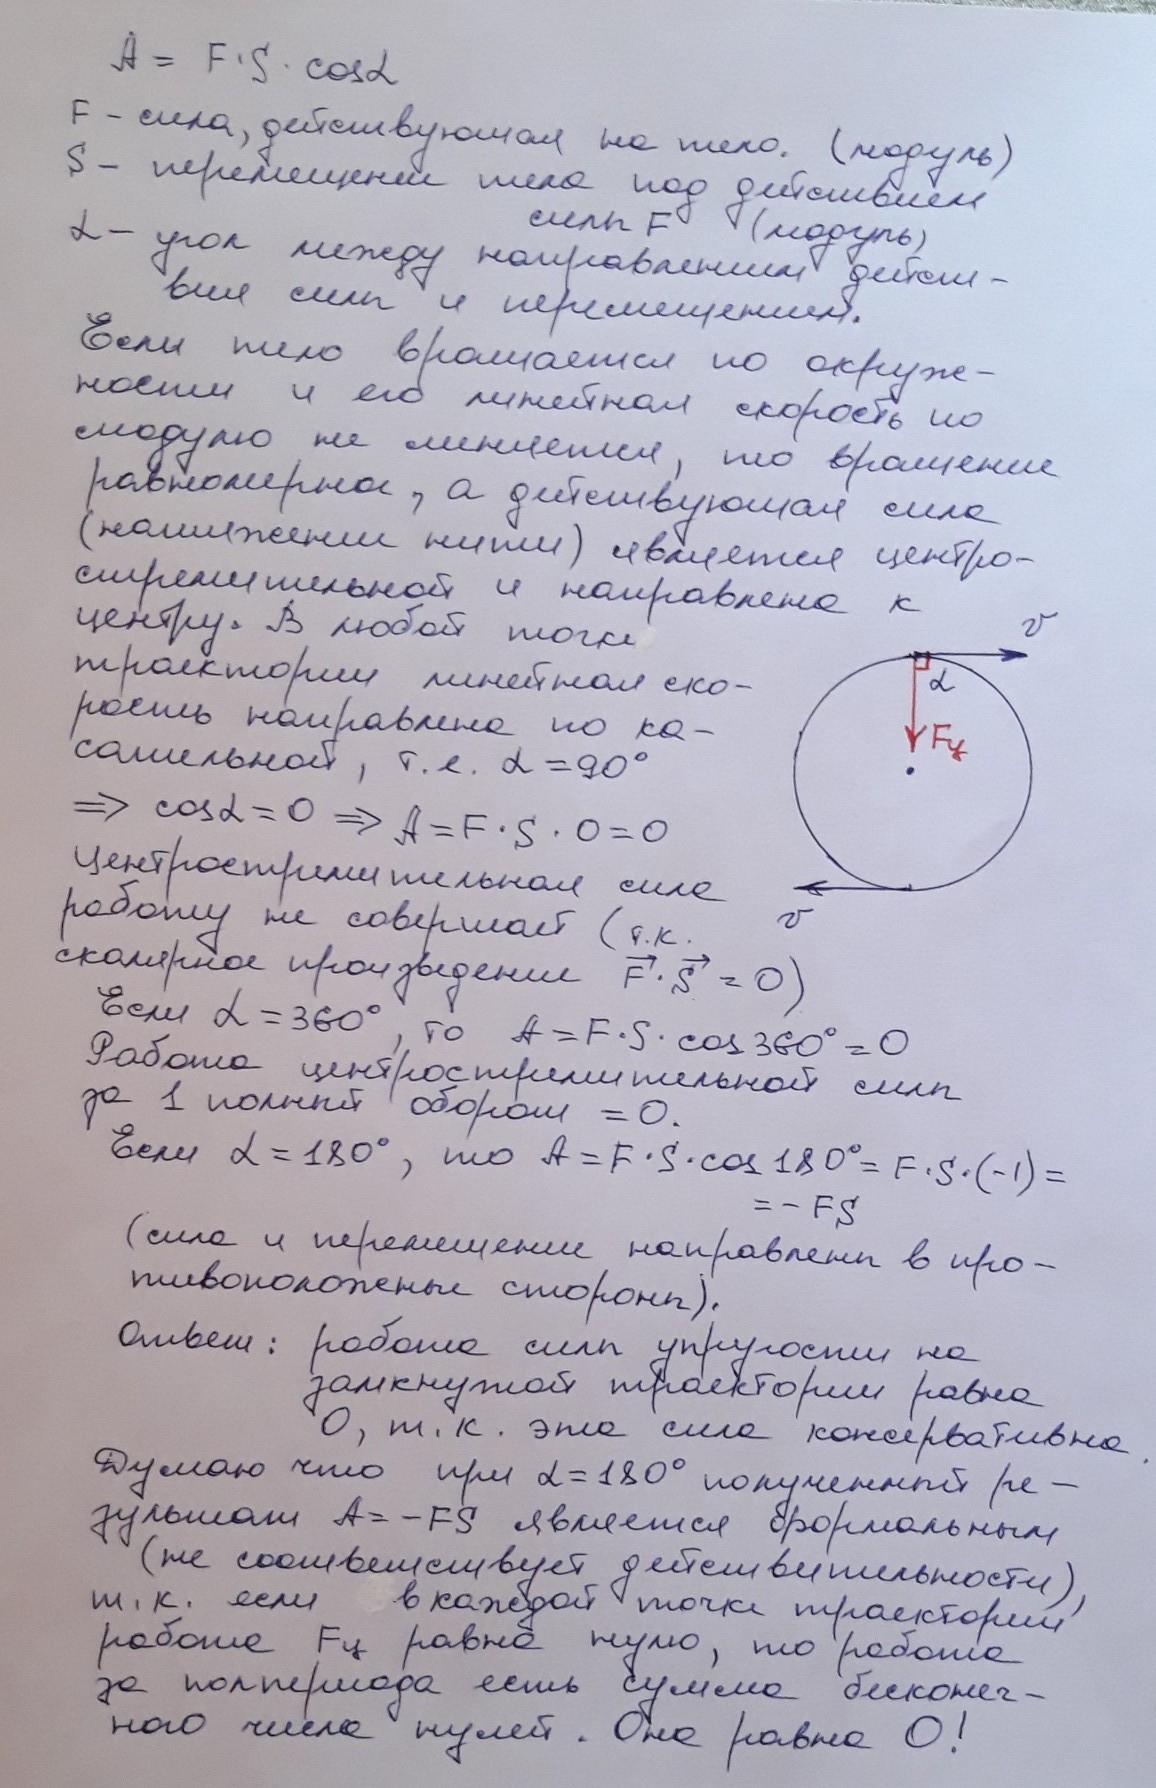 A = F·S·cosα
F - сила, действующая на тело. (модуль)
S - перемещение тела под действием
силы F (модуль)
α - угол между направлением дейст-
вия силы и перемещением.
Если тело вращается по окруж-
ности и его линейная скорость по
модулю не меняется, то вращение
равномерное, а действующая сила
(натяжения нити) является центро-
стремительной и направлена к
центру. В любой точке
траектории линейная ско-
рость направлена по ка-
сательной, т.е. α = 90°
⇒ cosα = 0 ⇒ A = F·S·0 = 0
Центростремительная сила
работу не совершает (т.к.
скалярное произведение F⃗·S⃗ = 0)
v
α
Fц
v
Если α = 360°, то A = F·S·cos 360° = 0
Работа центростремительной силы
за 1 полный оборот = 0.
Если α = 180°, то A = F·S·cos 180° = F·S·(-1) =
= - FS
(сила и перемещение направлены в про-
тивоположные стороны).
Ответ: работа силы упругости на
замкнутой траектории равна
0, т.к. эта сила консервативна.
Думаю что при α = 180° полученный ре-
зультат A = -FS является формальным
(не соответствует действительности),
т.к. если в каждой точке траектории
работа Fц равна нулю, то работа
за полпериода есть сумма бесконеч-
ного числа нулей. Она равна 0!